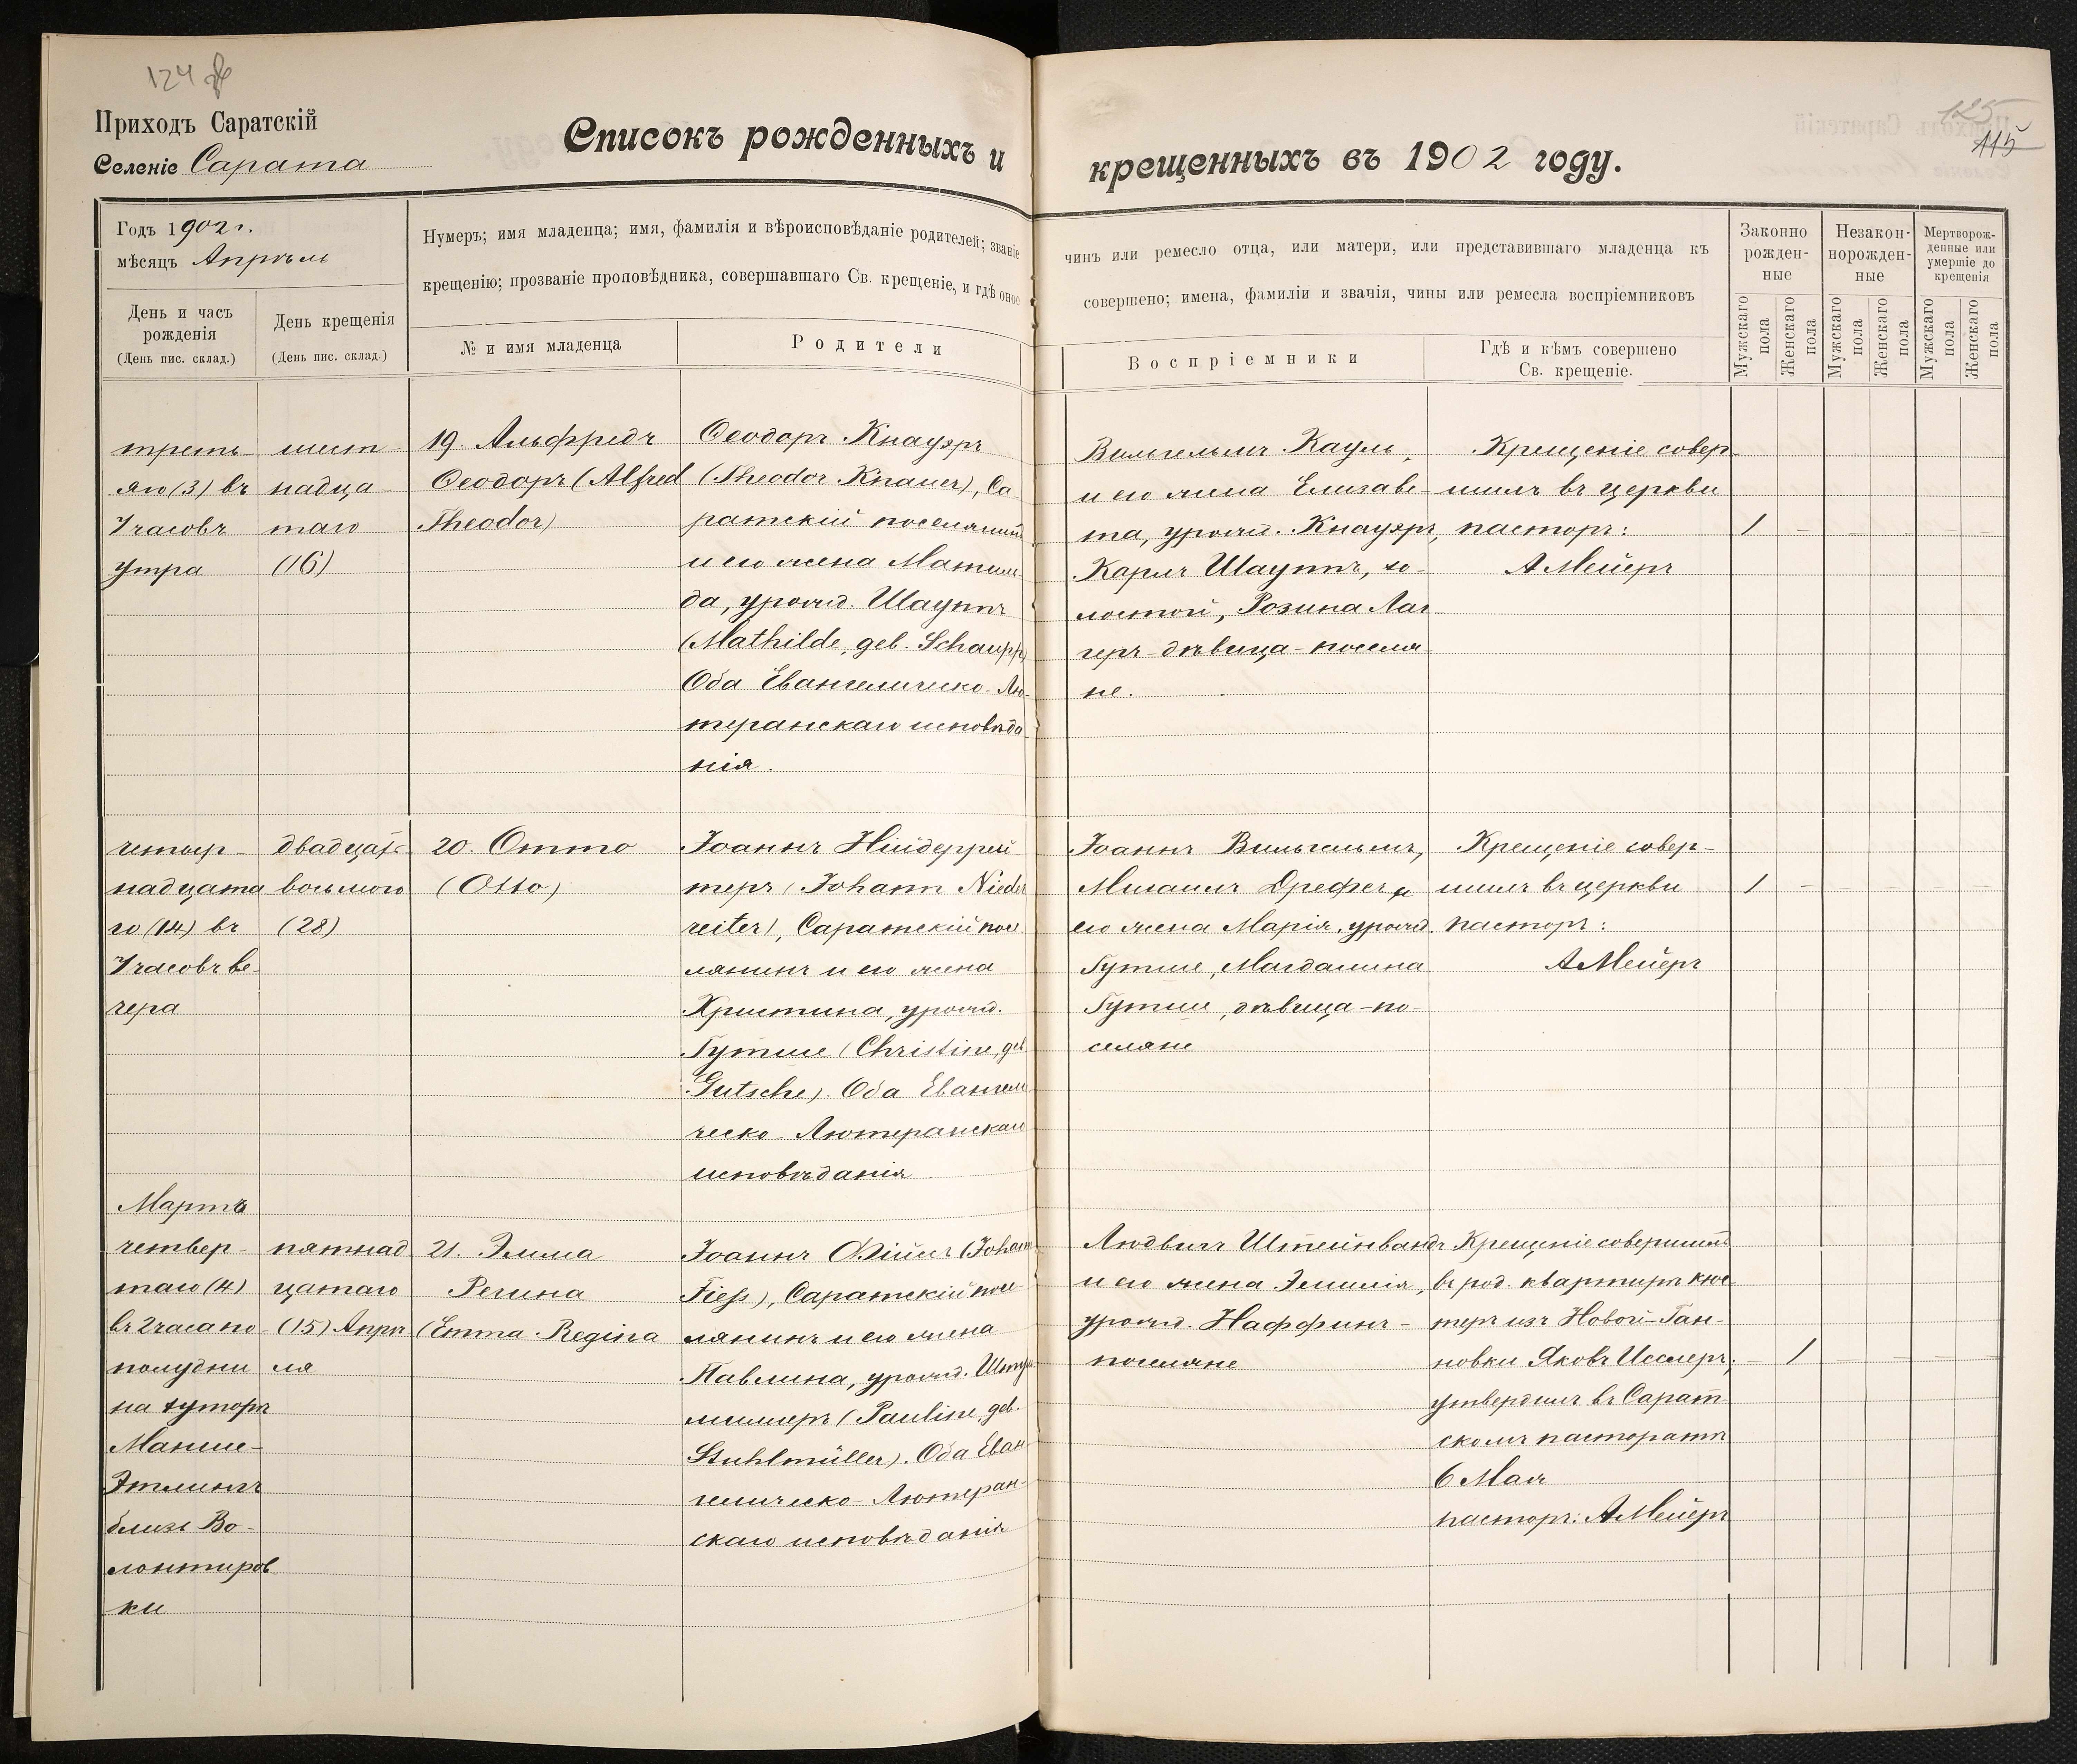 124
125
115
Приходъ Саратскій
Селеніе Сарата
Списокъ рожденныхъ и
крещенныхъ въ 1902 году.
Годъ 1902 г.
мѣсяцъ Апрѣль
День и часъ
рожденія
(День пис. склад.)
День крещенія
(День пис. склад.)
Нумеръ; имя младенца; имя, фамилія и вѣроисповѣданіе родителей; званіе
крещенію; прозваніе проповѣдника, совершавшаго Св. крещеніе, и гдѣ оное
№ и имя младенца
Родители
чинъ или ремесло отца, или матери, или представившаго младенца къ
совершено; имена, фамиліи и званія, чины или ремесла воспріемниковъ
Воспріемники
Гдѣ и кѣмъ совершено
Св. крещеніе.
Законно
рожден-
ные
Незакон-
норожден-
ные
Мертворож-
денные или
умершіе до
крещенія
Мужскаго
пола
Женскаго
пола
Мужскаго
пола
Женскаго
пола
Мужскаго
пола
Женскаго
пола
треть-
яго (3) въ
7 часовъ
утра
шест-
надца-
таго
(16)
19. Альфредъ
Ѳеодоръ (Alfred
Theodor)
Ѳеодоръ Кнауэръ
(Theodor Knauer), Са
ратскій поселянинъ
и его жена Матиль
да, урожд. Шауппъ
(Mathilde, geb. Schaupp)
Оба Евангелическо-Лю-
теранскаго исповѣда-
нія.
Вильгельмъ Кауль,
и его жена Елизаве-
та, урожд. Кнауэръ,
Карлъ Шауппъ, хо-
лостой, Розина Лаг
геръ-дѣвица-поселя-
не.
Крещеніе совер-
шилъ въ церкви
пасторъ:
А Мейеръ
1
четыр-
надцата
го (14) въ
7 часовъ ве-
чера
двадцать
восьмого
(28)
20. Отто
(Otto)
Іоаннъ Нійдеррей-
теръ (Johann Nieder
reiter), Саратскій посе
лянинъ и его жена
Христина, урожд.
Гутше (Christine, geb.
Gutsche). Оба Евангели
ческо-Лютеранскаго
исповѣданія
Іоаннъ Вильгельмъ,
Михаилъ Дреферъ и
его жена Марія, урожд.
Гутше, Магдалина
Гутше, дѣвица-по-
селяне
Крещеніе совер-
шилъ въ церкви
пасторъ:
А Мейеръ
1
Мартъ
четвер-
таго (4)
въ 2 часа по
полудни
на хуторѣ
Манше-
Этлингъ
близъ Во-
лонтиров
ки
пятнад
цатаго
(15) Апрѣ
ля
21. Эмма
Регина
(Emma Regina
Іоаннъ Фійсъ (Johann
Fieß), Саратскій посе
лянинъ и его жена
Павлина, урожд. Штул
миллеръ (Pauline, geb.
Stuhlmüller). Оба Еван
гелическо-Лютеран-
скаго исповѣданія
Людвигъ Штейнвандъ
и его жена Эмилія,
урожд. Наффингъ-
поселяне
Крещеніе совершилъ
въ род. квартирѣ кюс
теръ изъ Новой-Ган-
новки Яковъ Исслеръ;
утвердилъ въ Сарат-
скомъ пасторатѣ
6 Мая
пасторъ: А Мейеръ
1